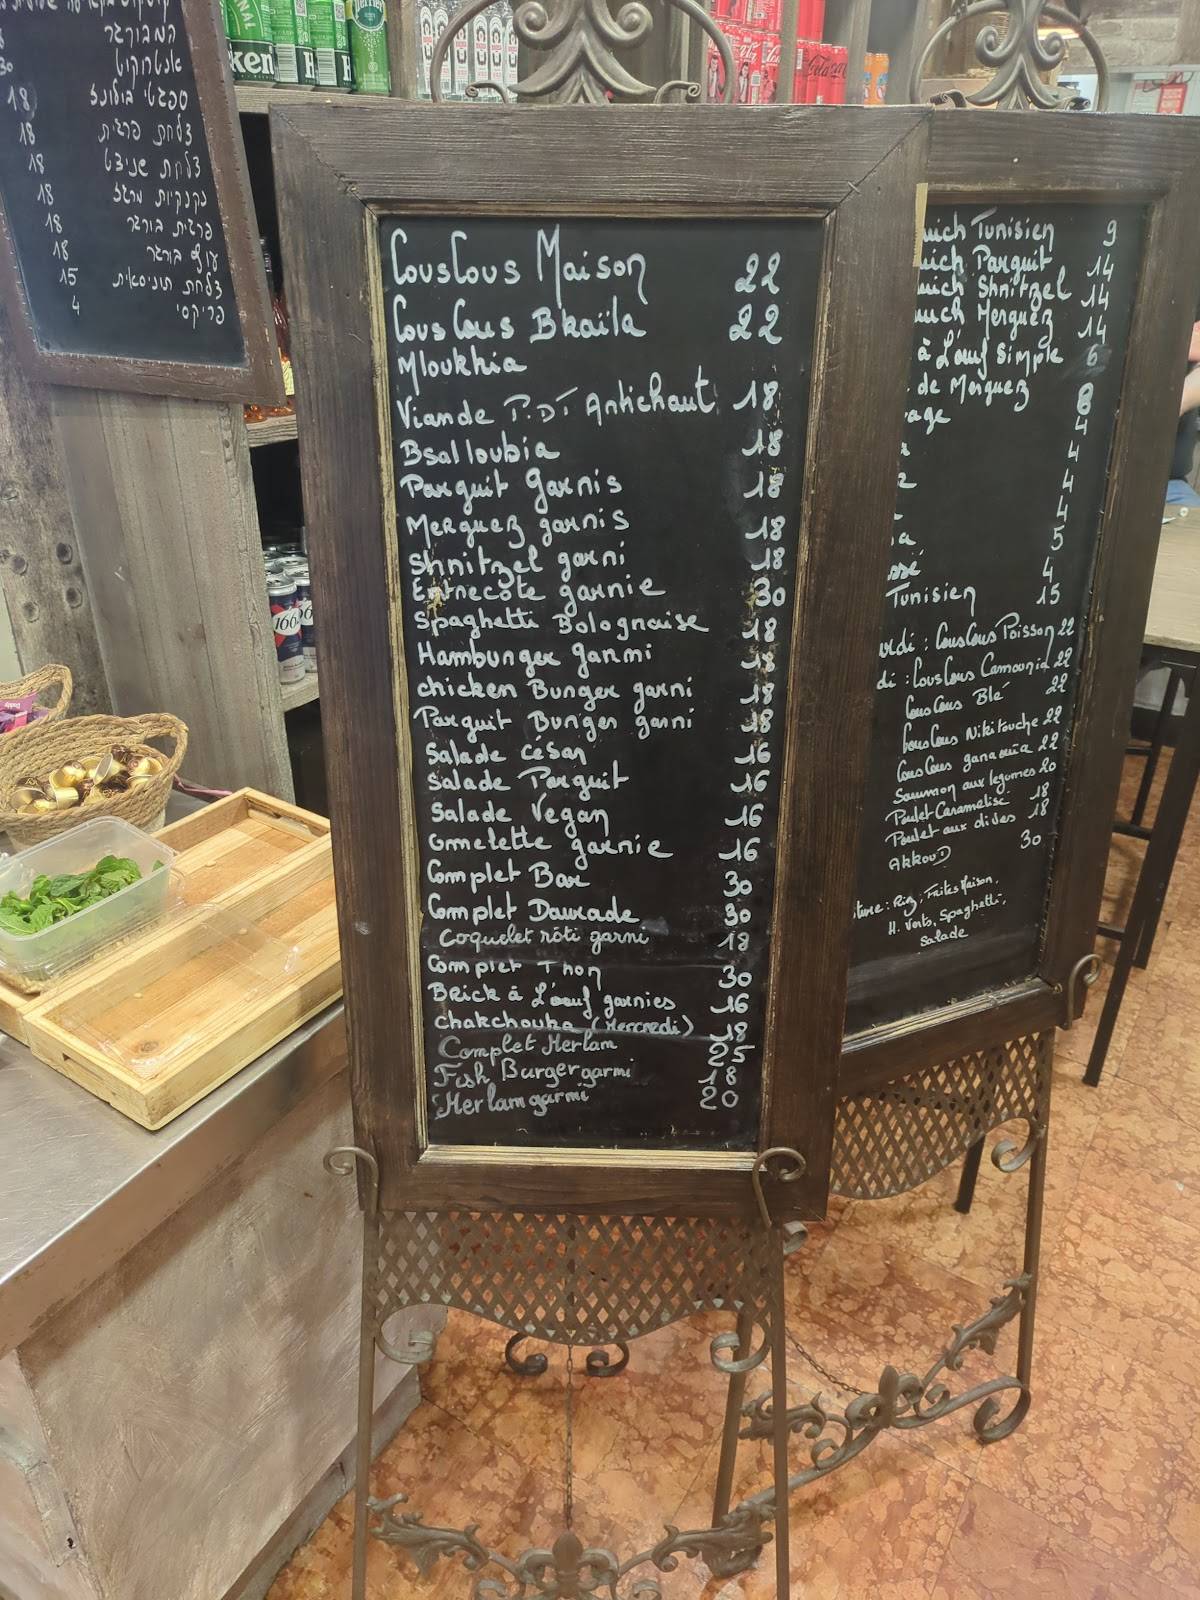 המבורגר
אנטרקוט 30
ספגטי בולונז 18
צלחת פרגית 18
צלחת שניצל 18
נקנקיות מרגז 18
פרגית בורגר 18
עוף בורגר 18
צלחת תוניסאית 15
פריקסי 4
CousCous Maison 22
CousCous Bkaïla 22
Mloukhia
Viande P.DT Antichaut 18
Bsalloubia 18
Parguit Garnis 18
Merguez garnis 18
Shnitzel garni 18
Entrecôte garnie 30
Spaghetti Bolognaise 18
Hamburger garni 18
chicken Burger garni 18
Parguit Burger garni 18
Salade César 16
Salade Parguit 16
Salade Vegan 16
omelette garnie 16
Complet Bar 30
Complet Daurade 30
Coquelet rôti garni 18
Complet Thon 30
Brick à L'œuf garnies 16
chakchouka (Mercredi) 18
Complet Merlam 25
Fish Burger garni 18
Merlam garni 20
Tunisien 9
Parguit 14
Shnitzel 14
Merguez 14
à L'œuf Simple 6
de Merguez 8
4
4
4
4
5
4
Tunisien 15
di : CousCous Poisson 22
di : CousCous Camounia 22
CousCous Blé 22
CousCous Nikitouche 22
CousCous ganaouia 22
Saumon aux legumes 20
Poulet Caramelisé 18
Poulet aux olives 18
AKKOUD 30
Riz, Frites Maison,
H. Verts, Spaghetti,
Salade
Heineken
Perrier
Coca-Cola
1664